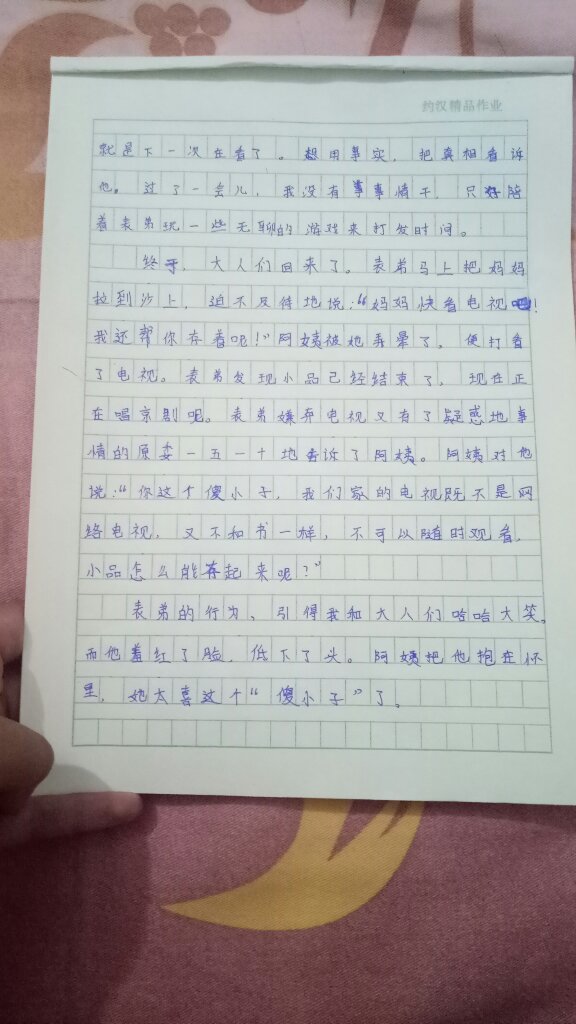 约汉精品作业
就是下一次在看了。想用事实，把真相看诉
他。过了一会儿，我没有事事情干，只好陪
着表弟玩一些无聊的游戏来打发时间。
终于，大人们回来了。表弟马上把妈妈
拉到沙上，迫不及待地说：“妈妈快看电视吧！
我还帮你存着呢！”阿姨被她弄晕了。便打看
了电视。表弟发现小品已经结束了，现在正
在唱京剧呢。表弟嫌弃电视又有了疑惑地事
情的原委一五一十地告诉了阿姨。阿姨对他
说：“你这个傻小子，我们家的电视既不是网
络电视，又不和书一样，不可以随时观看，
小品怎么能存起来呢？”
表弟的行为，引得我和大人们哈哈大笑。
而他羞红了脸，低下了头。阿姨把他抱在怀
里，她太喜这个“傻小子”了。